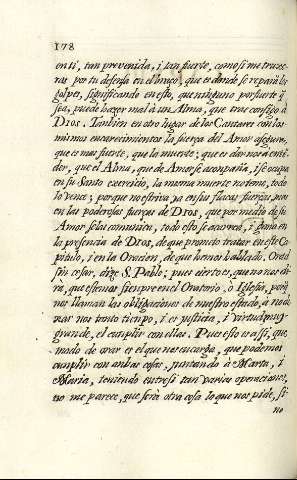 178
en ti, tan prevenida, i tan fuerte, como si me truxe-
ras por tu defensa en el braço; que es donde se reparā los
golpes, significando en esto, que ninguno por fuerte q̄
sea, puede hazer mal à un Alma, que trae consigo à
Dios. Tambien en otro lugar de los Cantares con los
mismos encarecimientos la fuerça del Amor assegura,
que es mas fuerte, que la muerte; que es dar nos à enten-
der, que el Alma, que de Amor se acompaña, i se ocupa
en su Santo exercicio, la misma muerte no teme, todo
lo vence; porque no estriva ya en sus flacas fuerças, pero
en las poderosas fuerças de Dios, que por medio de su
Amor se las comunica, todo esto se acarrea, i gana en
la presencia de Dios, de que prometo tratar en este Ca-
pitulo, i en la Oracion, de que hemos hablado. Orad
sin cesar, dize S. Pablo; pues cierto es, que no nos di-
rà, que estemos siempre en el Oratorio, ò Iglesia, porq̄
nos llaman las obligaciones de nuestro estado, à no o-
rar nos tanto tiempo, i es justicia, i virtud muy
grande, el cumplir con ellas. Pues esto es assi, que
modo de orar es el que nos encarga, que podemos
cumplir con ambas cosas, juntando à Marta, i
Maria, teniendo entre si tan varias operaciones,
no me parece, que serà otra cosa lo que nos pide, si-
no